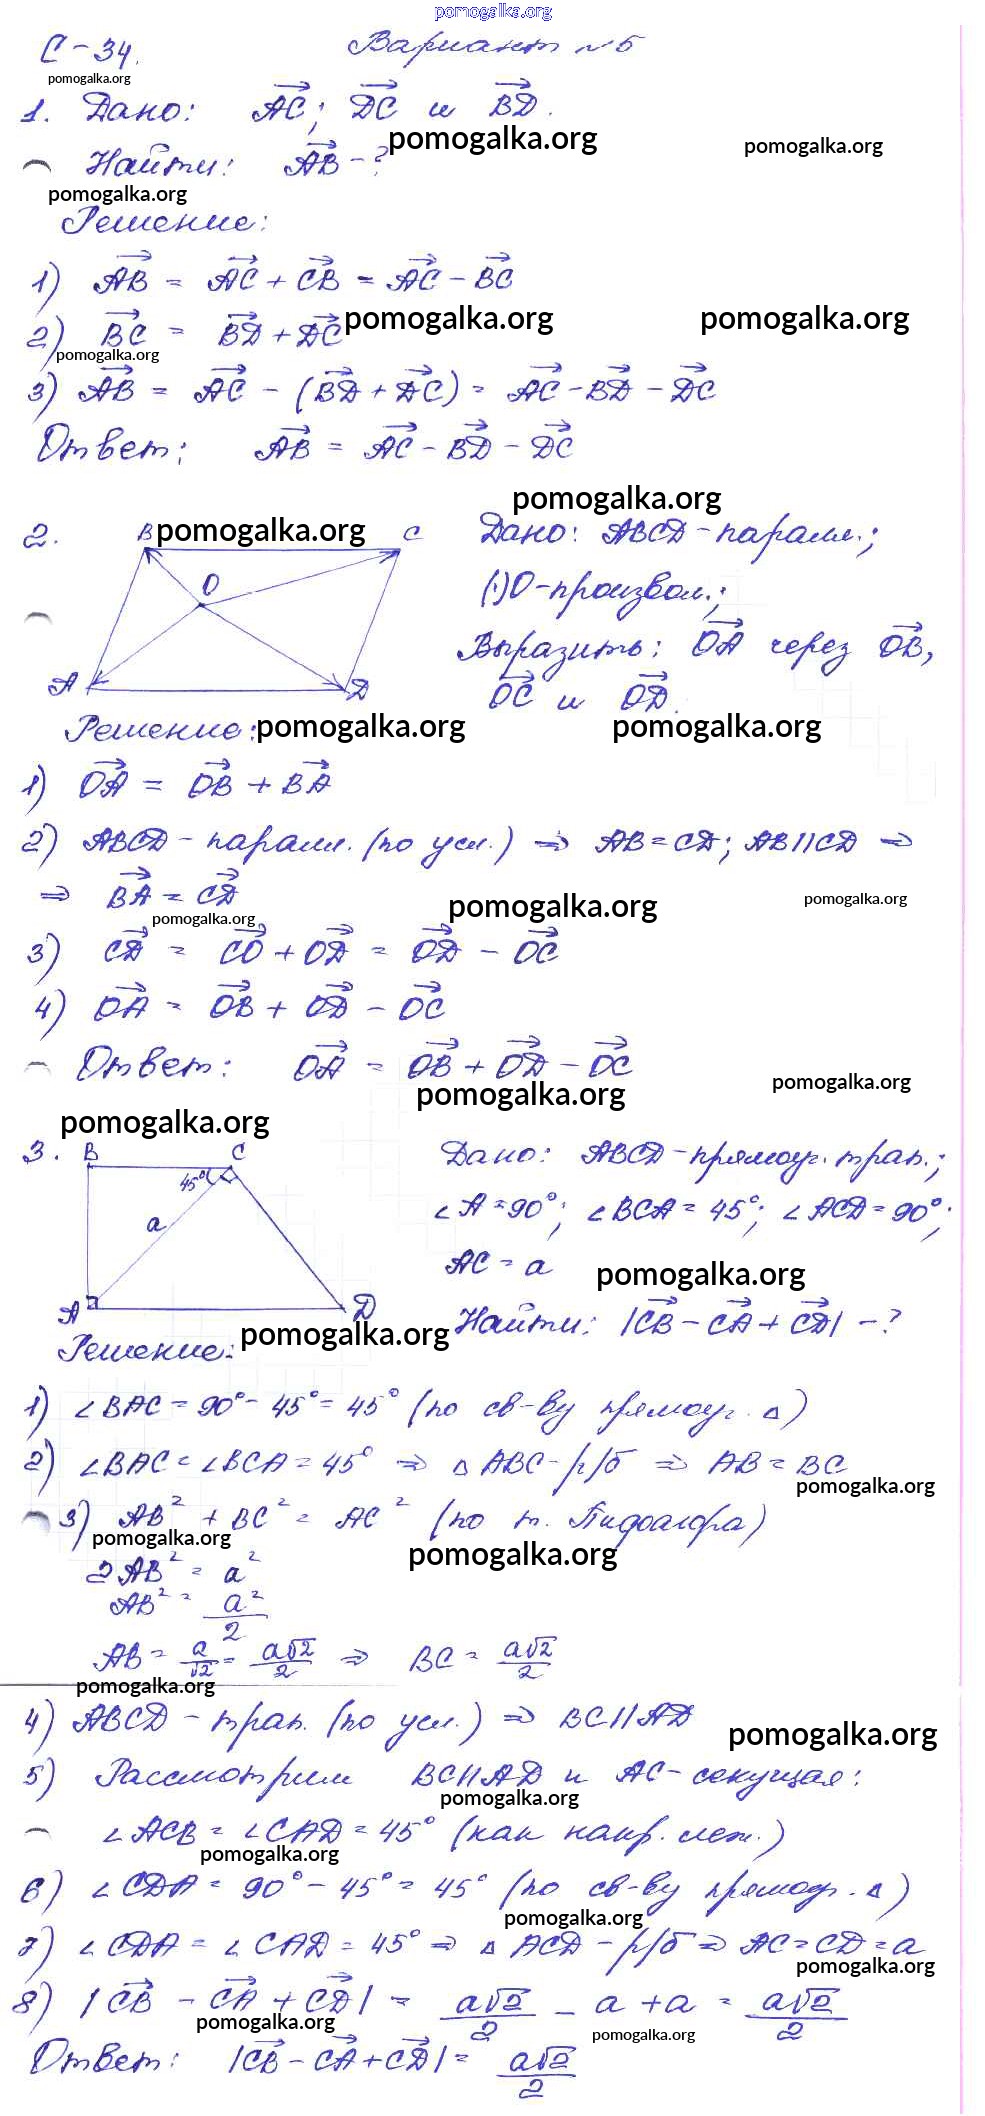 pomogalka.org
С-34. Вариант №5
pomogalka.org
1. Дано: AC; DC и BD.
pomogalka.org pomogalka.org
Найти: AB - ?
pomogalka.org
Решение:
1) AB = AC + CB = AC - BC
2) BC = BD + DC
pomogalka.org pomogalka.org
pomogalka.org
3) AB = AC - (BD + DC) = AC - BD - DC
Ответ: AB = AC - BD - DC
pomogalka.org
2. B pomogalka.org C
O
A D
Дано: ABCD - паралл.;
(·) O - произвол.;
Выразить: OA через OB,
OC и OD.
Решение: pomogalka.org pomogalka.org
1) OA = OB + BA
2) ABCD - паралл. (по усл.) ⇒ AB = CD; AB || CD ⇒
⇒ BA = CD
pomogalka.org pomogalka.org pomogalka.org
3) CD = CO + OD = OD - OC
4) OA = OB + OD - OC
Ответ: OA = OB + OD - OC
pomogalka.org pomogalka.org
pomogalka.org
3. B C
45°
a
A D
Дано: ABCD - прямоуг. трап.;
∠A = 90°; ∠BCA = 45°; ∠ACD = 90°;
AC = a
pomogalka.org
Найти: |CB - CA + CD| - ?
pomogalka.org
Решение:
1) ∠BAC = 90° - 45° = 45° (по св-ву прямоуг. △)
2) ∠BAC = ∠BCA = 45° ⇒ △ABC - р/б ⇒ AB = BC
pomogalka.org
3) AB² + BC² = AC² (по т. Пифагора)
pomogalka.org pomogalka.org
2AB² = a²
AB² = a²/2
AB = a/√2 = a√2/2 ⇒ BC = a√2/2
pomogalka.org
4) ABCD - трап. (по усл.) ⇒ BC || AD
pomogalka.org
5) Рассмотрим BC || AD и AC - секущая:
pomogalka.org
∠ACB = ∠CAD = 45° (как накр. леж.)
pomogalka.org
6) ∠CDA = 90° - 45° = 45° (по св-ву прямоуг. △)
pomogalka.org
7) ∠CDA = ∠CAD = 45° ⇒ △ACD - р/б ⇒ AC = CD = a
pomogalka.org
8) |CB - CA + CD| = a√2/2 - a + a = a√2/2
pomogalka.org pomogalka.org
Ответ: |CB - CA + CD| = a√2/2